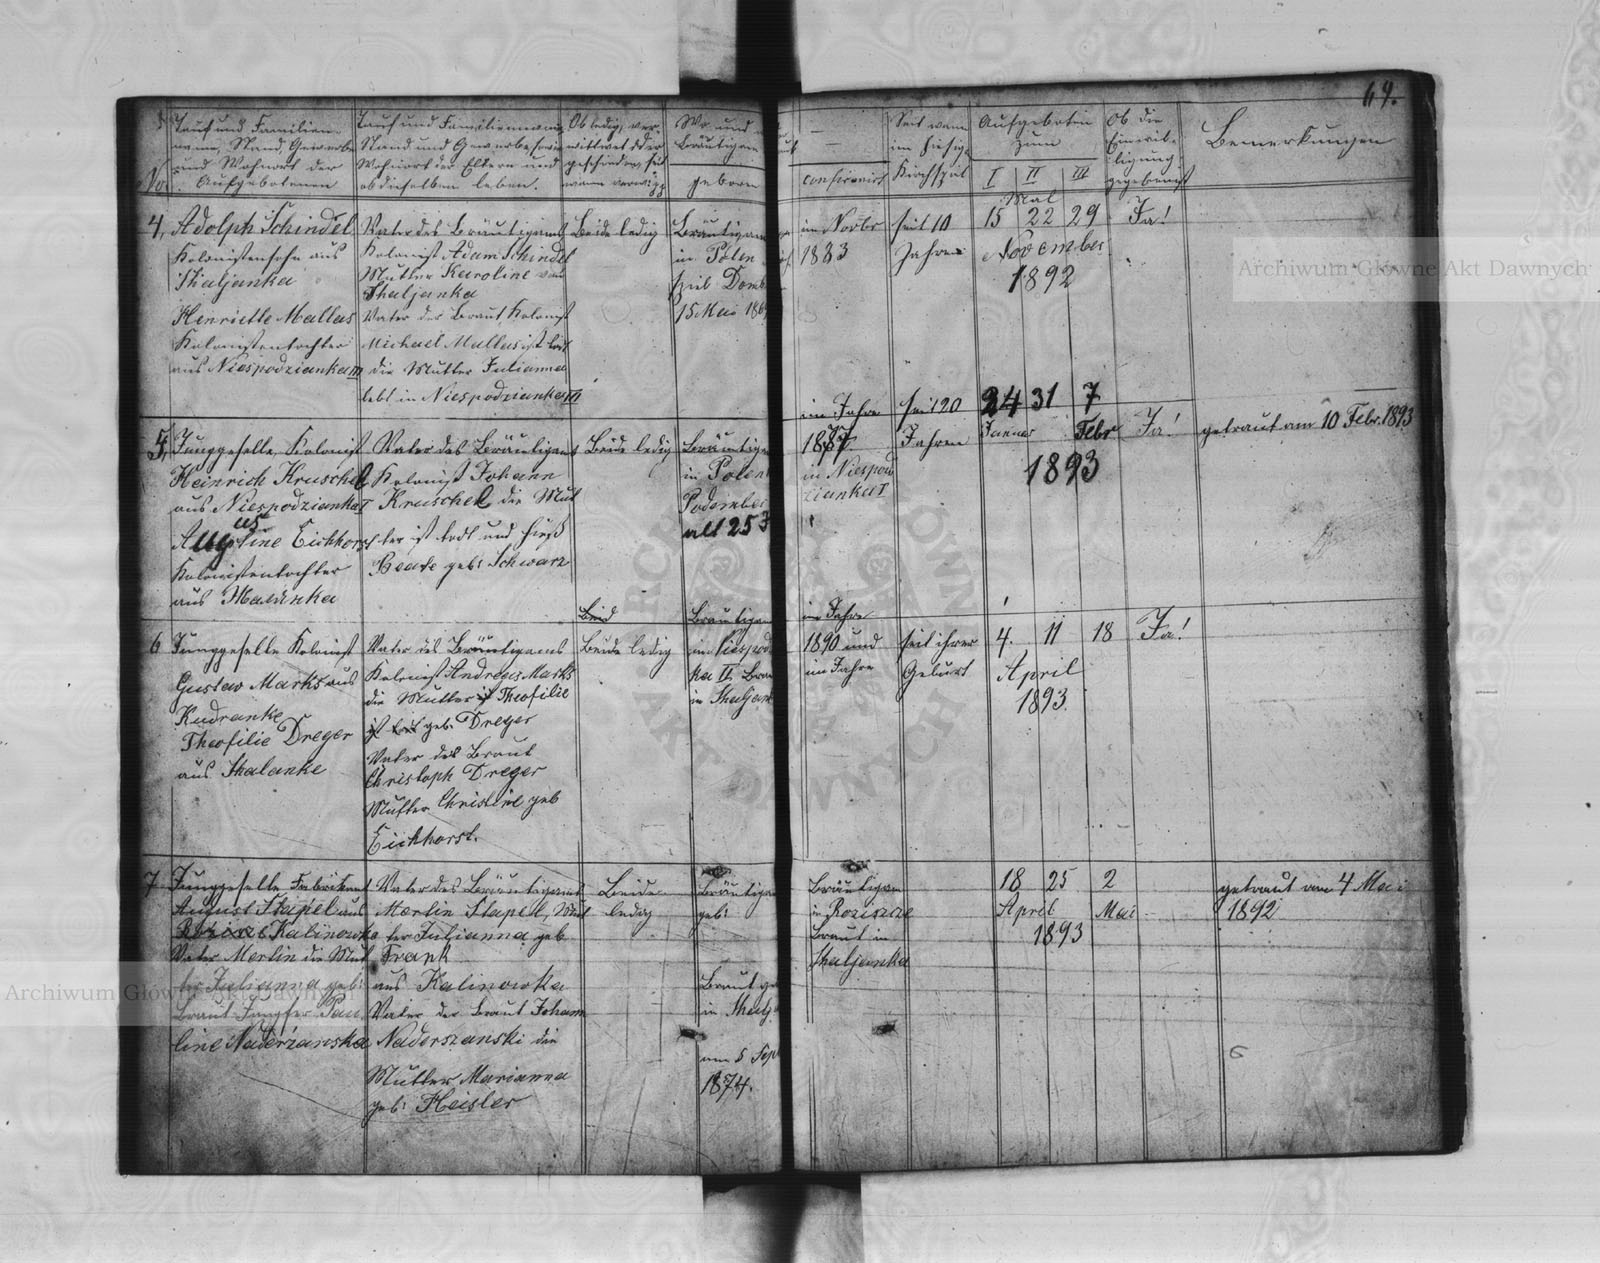 64.
No
Tauf und Familien-
name, Stand, Gewerbe
und Wohnort der
Aufgebotenen
Tauf und Familienname
Stand und Gewerbe sowie
Wohnort der Eltern und
ob dieselben leben.
Ob ledig, ver-
wittwet oder
geschieden, seit
wann
Wo und
Bräutigam
geboren
confirmirt
Seit wann
im hiesige
Kirchspiel
Aufgeboten
zum
I II III
Mal
Ob die
Einwil-
ligung
gegeben ist
Bemerkungen
4, Adolph Schindel
Kolonistensohn aus
Skaljanka
Henriette Mallas
Kolonistentochter
aus Niespodzianka III
Vater des Bräutigams
Kolonist Adam Schindel
Mutter Karoline von
Skaljanka
Vater der Braut Kolonist
Michael Mallas ist todt
die Mutter Julianna
lebt in Niespodzianka III
Beide ledig
Bräutigam
in Polen
15 Mai
in Novbr
1883
seit 10
Jahren
15 22 29
November
1892
Ja!
5, Junggeselle, Kolonist
Heinrich Kruschel
aus Niespodzianka I
Augustine Eichhorst
Kolonistentochter
aus MaEinka
Vater des Bräutigams
Kolonist Johann
Kruschel die Mut
ter ist todt und hieß
Beate geb: Schwarz
Beide ledig
Bräutigam
in Polen
alt 25 J
im Jahre
1887
in Niespod
zianka I
seit 20
Jahren
24 31 7
Januar Febr
1893
Ja!
getraut am 10 Febr. 1893
6 Junggeselle Kolonist
Gustav Marks aus
Kudranke
Theofilie Dreger
aus Skalanke
Vater des Bräutigams
Kolonist Andreas Marks
die Mutter ist Theofilie
ist todt geb. Dreger
Vater der Braut
Christoph Dreger
Mutter Christine geb
Eichhorst.
Beid
Beide ledig
Bräutigam
in Niespod
ka II Braut
in Skaljank
im Jahre
1890 und
im Jahre
seit ihrer
Geburt
4. 11 18
April
1893.
Ja!
7 Junggeselle Fabrikant
August Stapel aus
Kalinowka
Vater Merlin die Mut
ter Julianna geb:
Braut Jungfer Pau
line Naderżanska
Vater des Bräutigams
Merlin Stapel, Mut
ter Julianna geb
Frank
aus Kalinowka
Vater der Braut Johann
Naderszanski die
Mutter Marianna
geb: Heisler
Beide
ledig
Bräutigam
geb:
Braut ge
in Skalj
am 5 Sept
1874.
Bräutigam
in Roziszcze
Braut in
Skaljanka
18 25 2
April Mai
1893
getraut am 4 Mai
1892
6
Archiwum Główne Akt Dawnych
Archiwum Główne Akt Dawnych